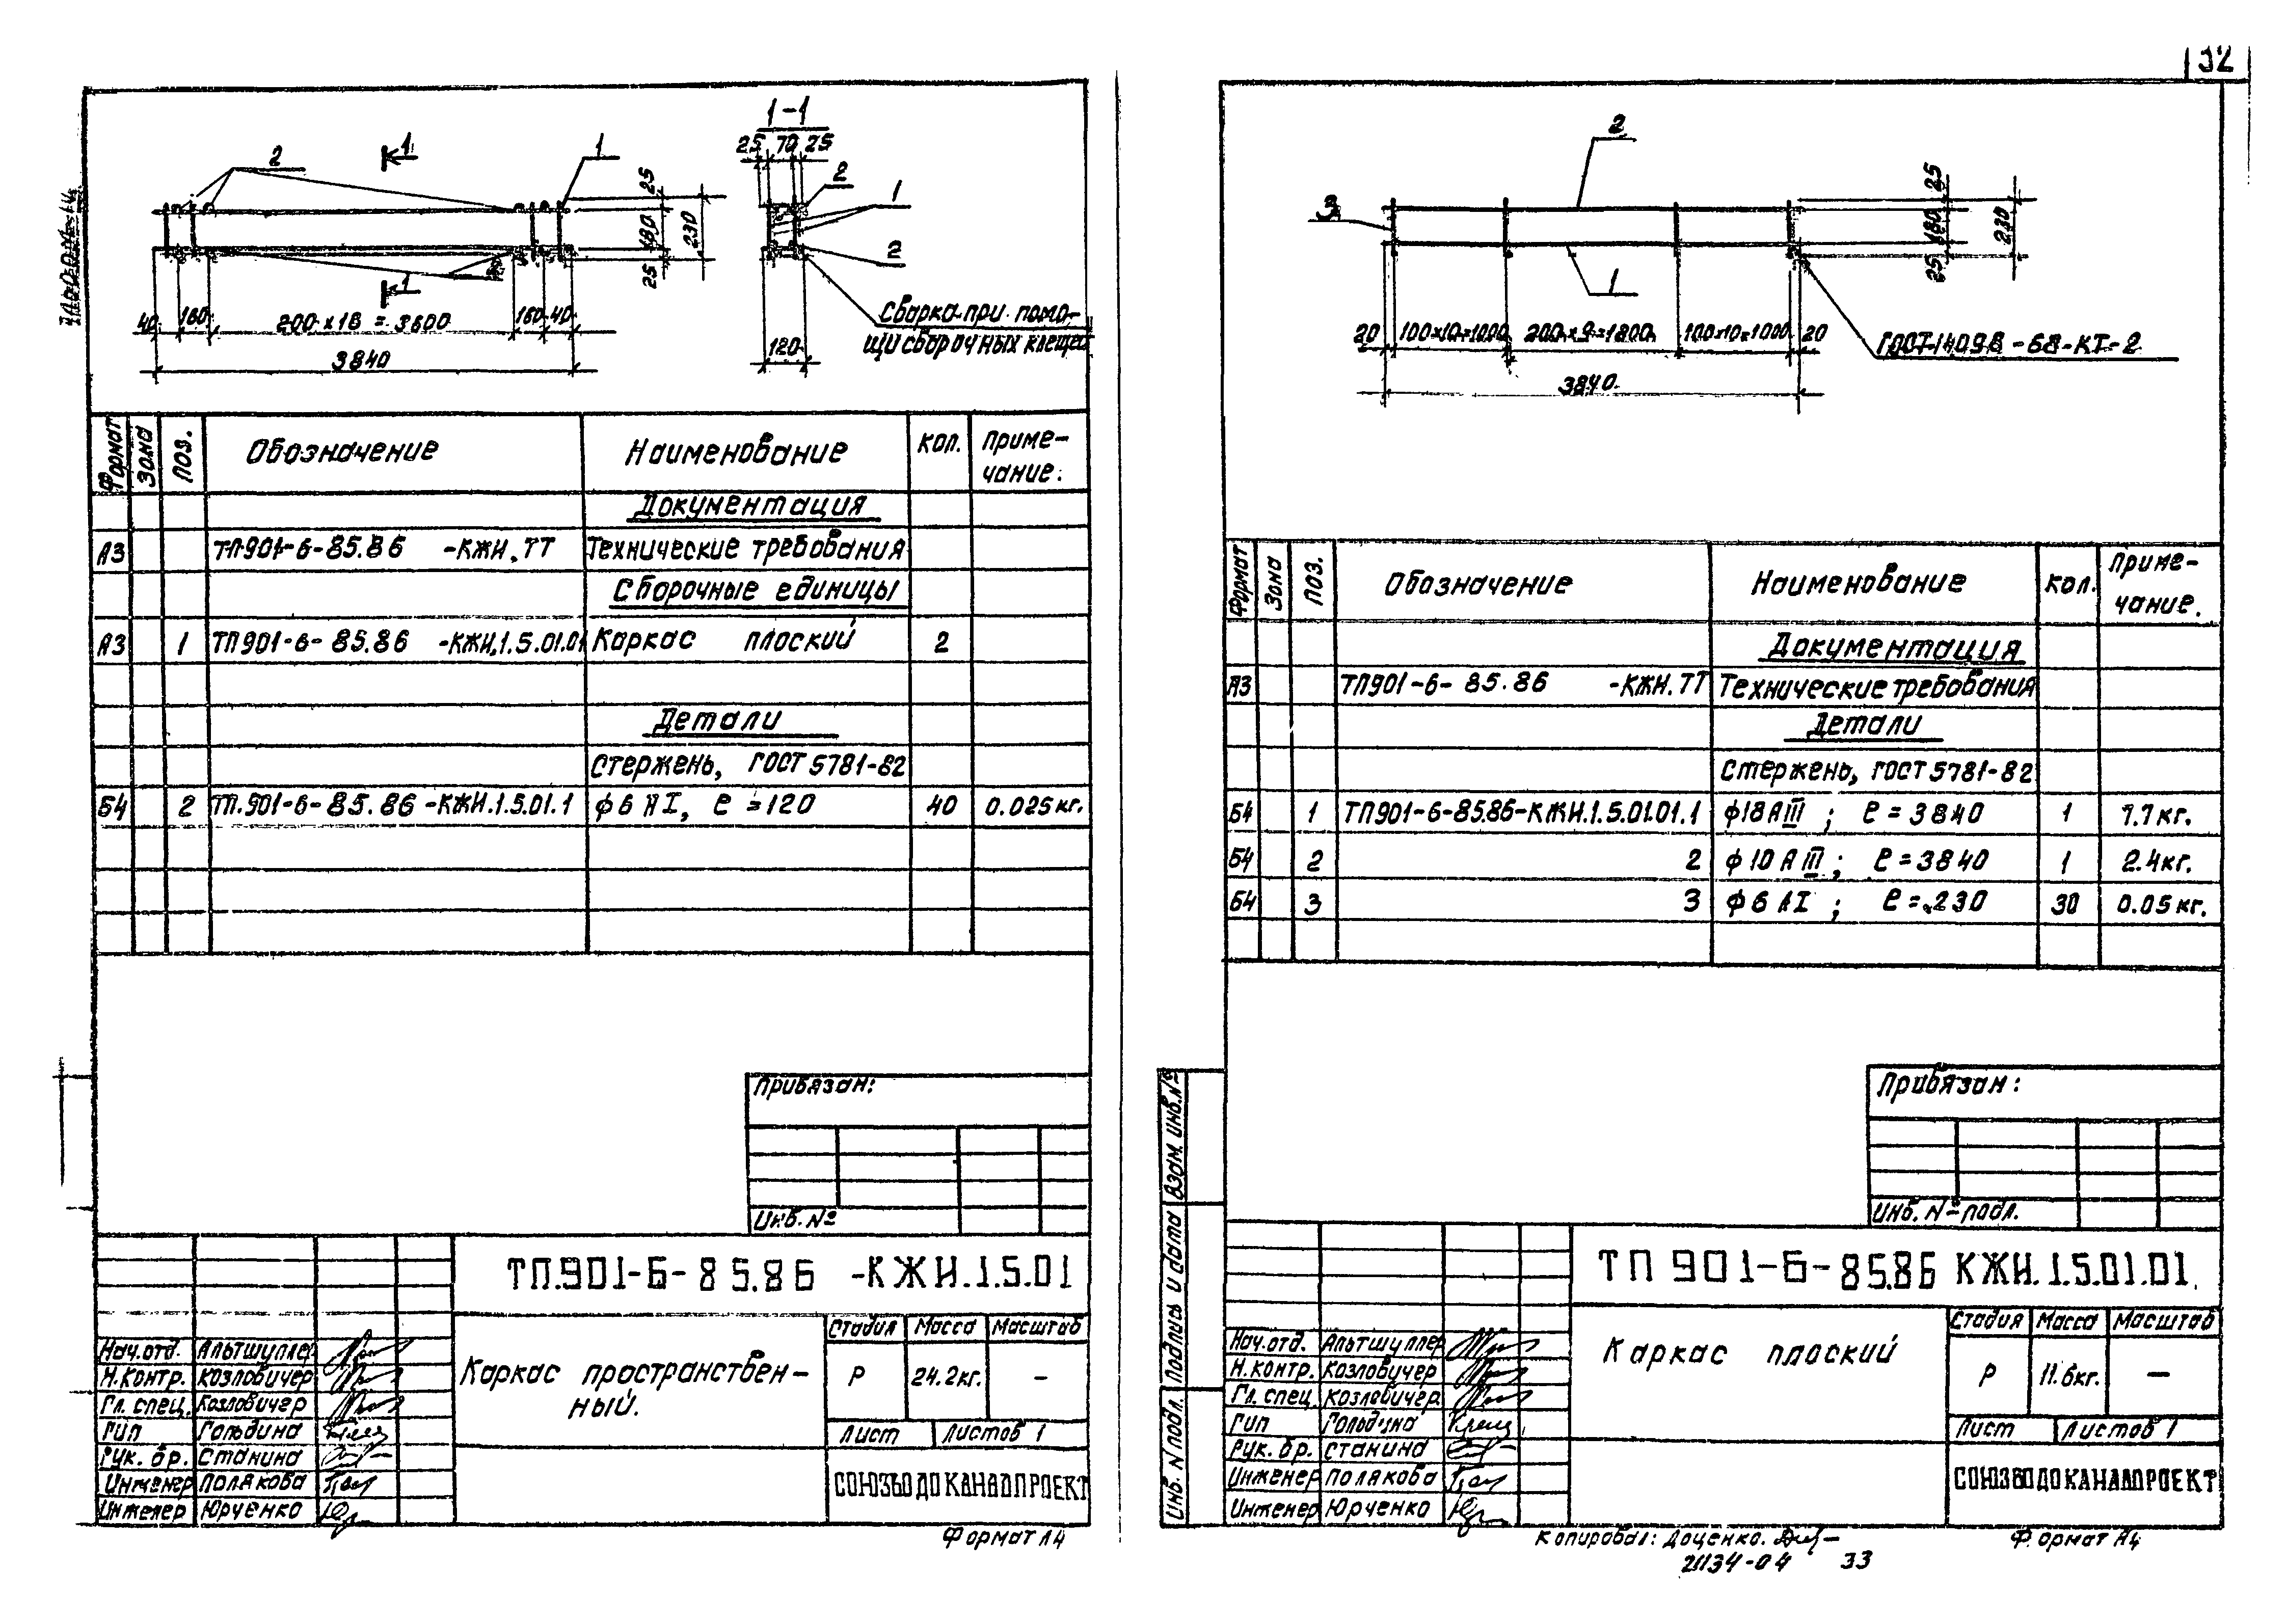 32
1-1
25 70 25
2
1
1
2
1
2
1
25
180
230
25
40
160
200 x 18 = 3600
160
40
3840
120
Сварка при помо-
щи сборочных клещей
Формат
Зона
Поз.
Обозначение
Наименование
Кол.
Приме-
чание.
Документация
А3 ТП.901-6-85.86 -КЖИ.ТТ Технические требования
Сборочные единицы
А3 1 ТП901-6-85.86 -КЖИ.1.5.01.01 Каркас плоский 2
Детали
Стержень, ГОСТ 5781-82
Б4 2 ТП.901-6-85.86-КЖИ.1.5.01.1 ф6 АI, ℓ=120 40 0.025кг.
Привязан:
Инв. №
ТП.901-6-85.86 -КЖИ.1.5.01
Нач.отд. Альтшуллер
Н.контр. Козловичер
Гл. спец. Козловичер
ГИП Гольдина
Рук. бр. Станина
Инженер Полякова
Инженер Юрченко
Каркас пространствен-
ный.
Стадия Масса Масштаб
Р 24.2кг. -
Лист Листов 1
СОЮЗВОДОКАНАЛПРОЕКТ
Формат А4
2
3
1
25
180
230
25
20
100x10=1000
200x9=1800
100x10=1000
20
3840
ГОСТ 14098-68-КТ-2
Формат
Зона
Поз.
Обозначение
Наименование
Кол.
Приме-
чание.
Документация
А3 ТП901-6-85.86 -КЖИ.ТТ Технические требования
Детали
Стержень, ГОСТ 5781-82
Б4 1 ТП901-6-85.86-КЖИ.1.5.01.01.1 ф18АIII; ℓ=3840 1 7.7кг.
Б4 2 2 ф10АIII; ℓ=3840 1 2.4кг.
Б4 3 3 ф6 АI; ℓ=230 30 0.05кг.
Привязан:
Инв. № подл.
Взам. инв. №
Подпись и дата
Инв. N подл.
ТП 901-6-85.86 КЖИ.1.5.01.01.
Нач.отд. Альтшуллер
Н.контр. Козловичер
Гл. спец. Козловичер
ГИП Гольдина
Рук. бр. Станина
Инженер Полякова
Инженер Юрченко
Каркас плоский
Стадия Масса Масштаб
Р 11.6кг. —
Лист Листов 1
СОЮЗВОДОКАНАЛПРОЕКТ
Копировал: Доценко.
Формат А4
21134-04 33